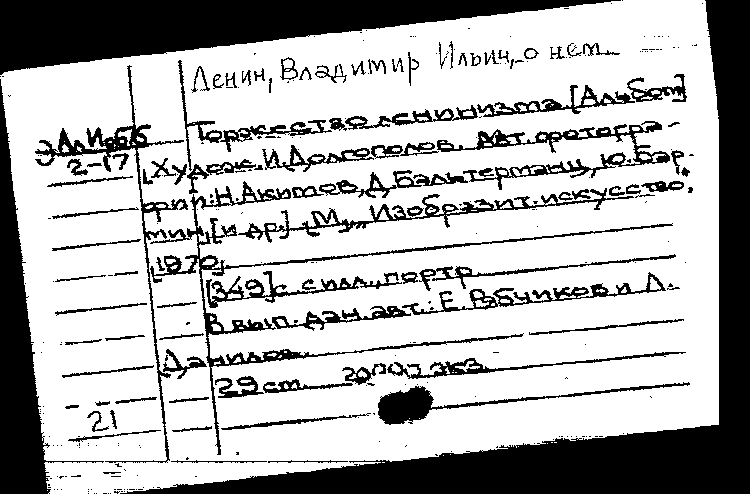 Ленин, Владимир Ильич, о нем.
Торжество ленинизма [Альбом]
2-17
Худож. И. Долгополов. Авт. фотогра-
фий: Н. Акимов, Д. Бальтерманц, Ю. Бар-
мин, [и др.] М., „Изобразит. искусство",
1970.
[349] с. с илл., портр.
В вып. дан. авт.: Е. Рябчиков и Л.
Данилов.
29 см. 20000 экз.
21